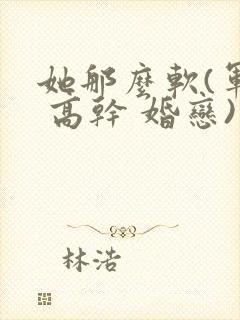 她那麼軟(軍
高幹 婚戀)
林浩